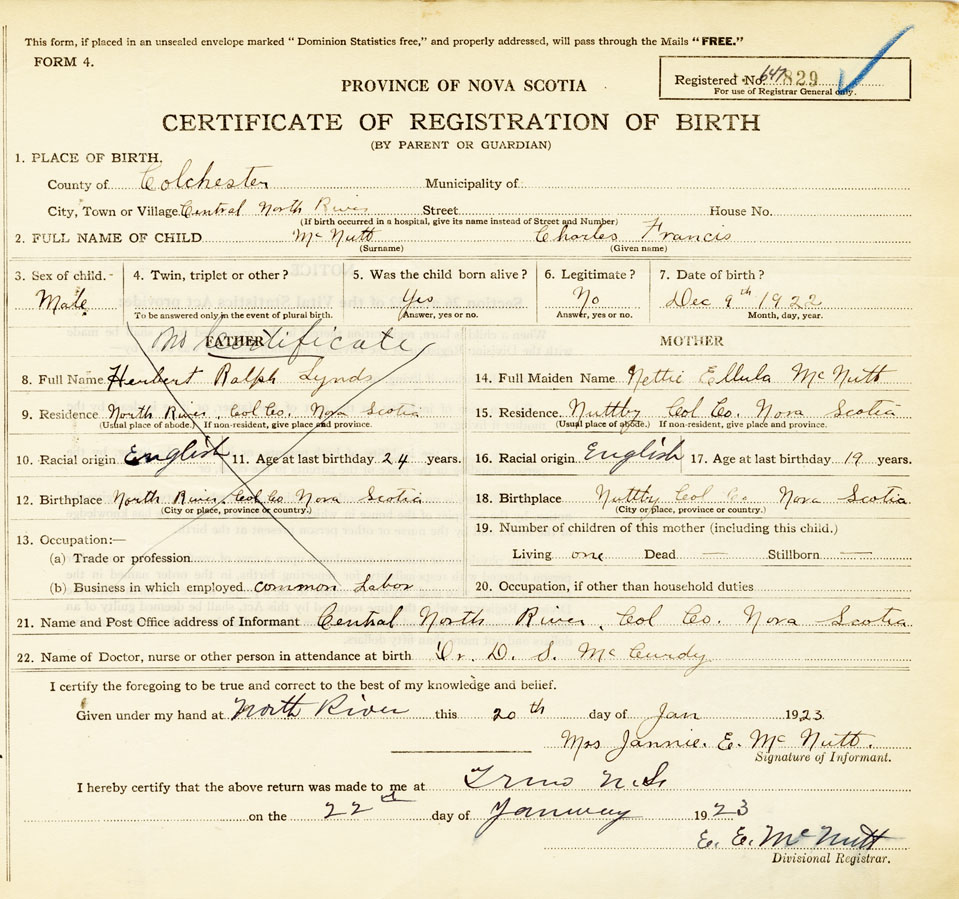 This form, if placed in an unsealed envelope marked "Dominion Statistics free," and properly addressed, will pass through the Mails "FREE."
FORM 4.
Registered No. 647 829
For use of Registrar General only.
PROVINCE OF NOVA SCOTIA
CERTIFICATE OF REGISTRATION OF BIRTH
(BY PARENT OR GUARDIAN)
1. PLACE OF BIRTH.
County of Colchester Municipality of
City, Town or Village Central North River Street House No.
(If birth occurred in a hospital, give its name instead of Street and Number)
2. FULL NAME OF CHILD McNutt Charles Francis
(Surname) (Given name)
3. Sex of child.- 4. Twin, triplet or other? 5. Was the child born alive? 6. Legitimate? 7. Date of birth?
Male Yes No Dec 9th 1922
To be answered only in the event of plural birth. Answer, yes or no. Answer, yes or no. Month, day, year.
No Certificate
FATHER MOTHER
8. Full Name Herbert Ralph Lynds 14. Full Maiden Name Nettie Ellula McNutt
9. Residence North River, Col Co. Nova Scotia 15. Residence. Nuttby Col Co. Nova Scotia
(Usual place of abode.) If non-resident, give place and province. (Usual place of abode.) If non-resident, give place and province.
10. Racial origin English 11. Age at last birthday 24 years. 16. Racial origin English 17. Age at last birthday 19 years.
12. Birthplace North River, Col Co Nova Scotia 18. Birthplace Nuttby Col Co Nova Scotia
(City or place, province or country.) (City or place, province or country.)
19. Number of children of this mother (including this child.)
13. Occupation:—
(a) Trade or profession Living one Dead — Stillborn —
(b) Business in which employed common Labor 20. Occupation, if other than household duties
21. Name and Post Office address of Informant Central North River, Col Co. Nova Scotia
22. Name of Doctor, nurse or other person in attendance at birth Dr. D. S. McCurdy
I certify the foregoing to be true and correct to the best of my knowledge and belief.
Given under my hand at North River this 20th day of Jan 1923.
Mrs Jannie. E. McNutt.
Signature of Informant.
I hereby certify that the above return was made to me at Truro N.S.
on the 22nd day of January 1923
E. E. McNutt
Divisional Registrar.